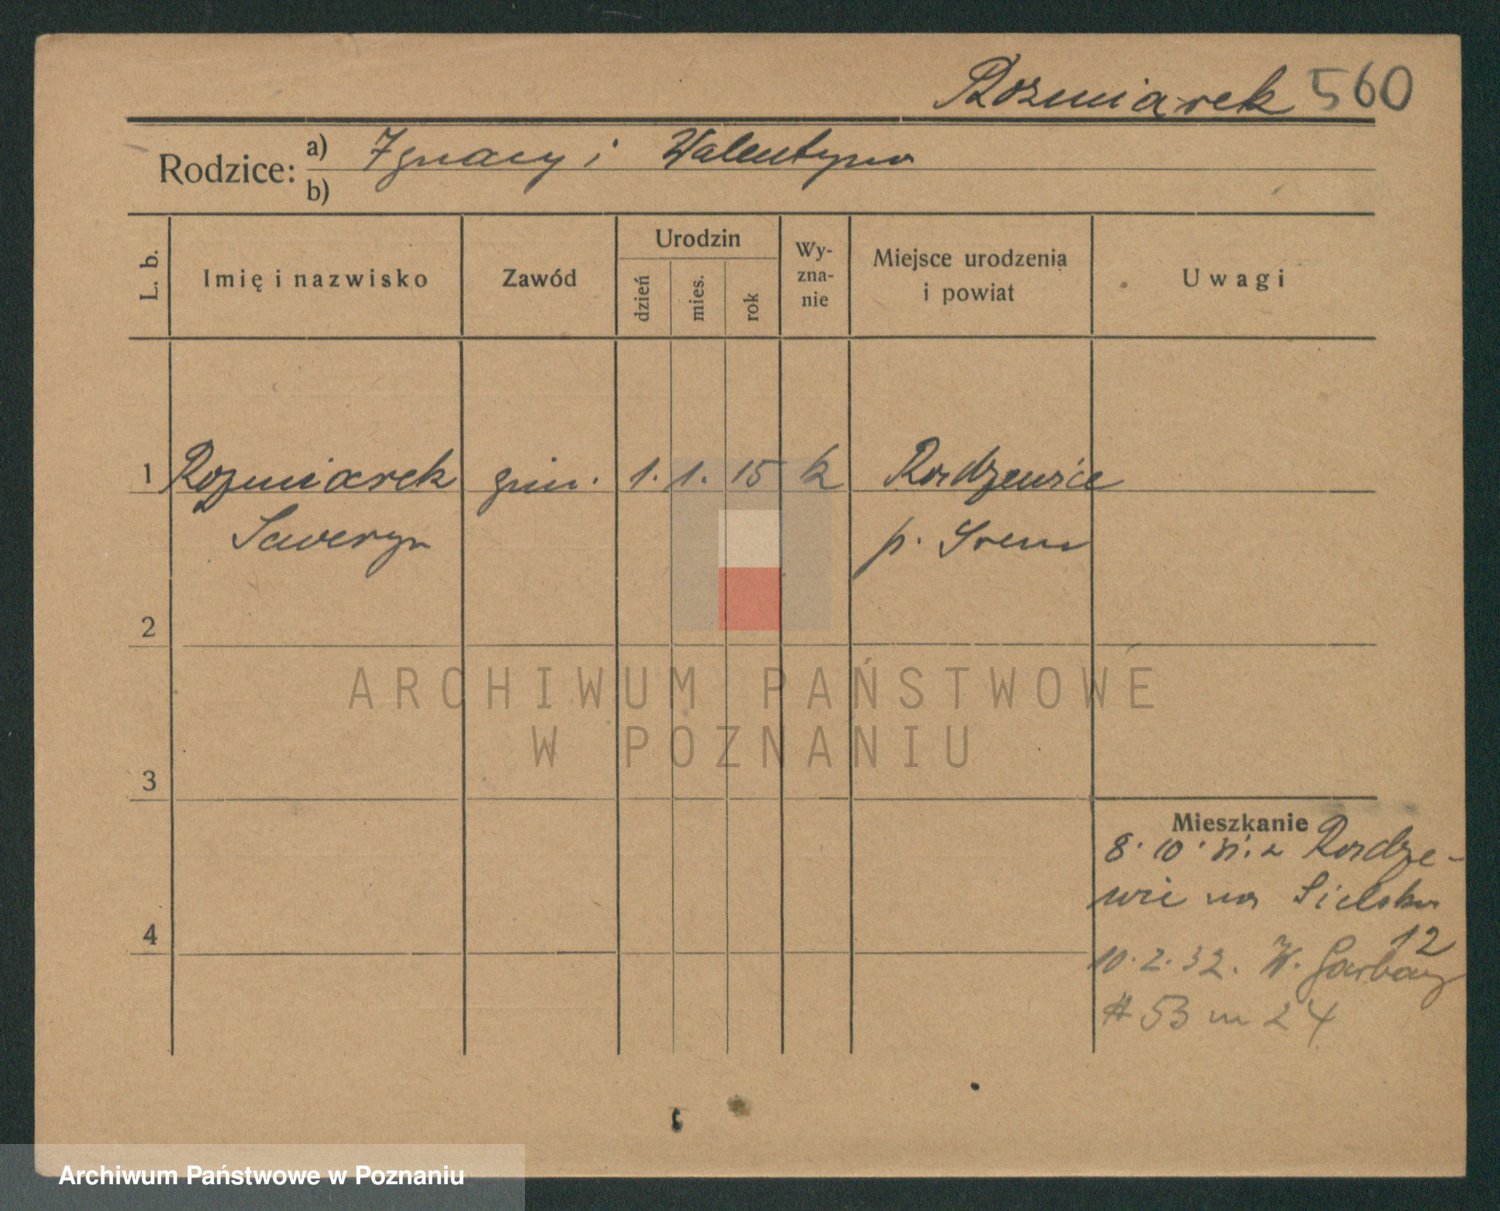 Rozmiarek 560
Rodzice: a) Ignacy i Walentyna
b)
L. b. Imię i nazwisko Zawód Urodzin dzień mies. rok Wy-zna-nie Miejsce urodzenia i powiat Uwagi
1 Rozmiarek gim. 1. 1. 15 k Radzewice
Seweryn p. Śrem
2
ARCHIWUM PAŃSTWOWE
W POZNANIU
3
Mieszkanie
8. 10. 31. z Radze-
wic na Sielska
4 12
10. 2. 32. W. Garbary
# 53 m 24
Archiwum Państwowe w Poznaniu